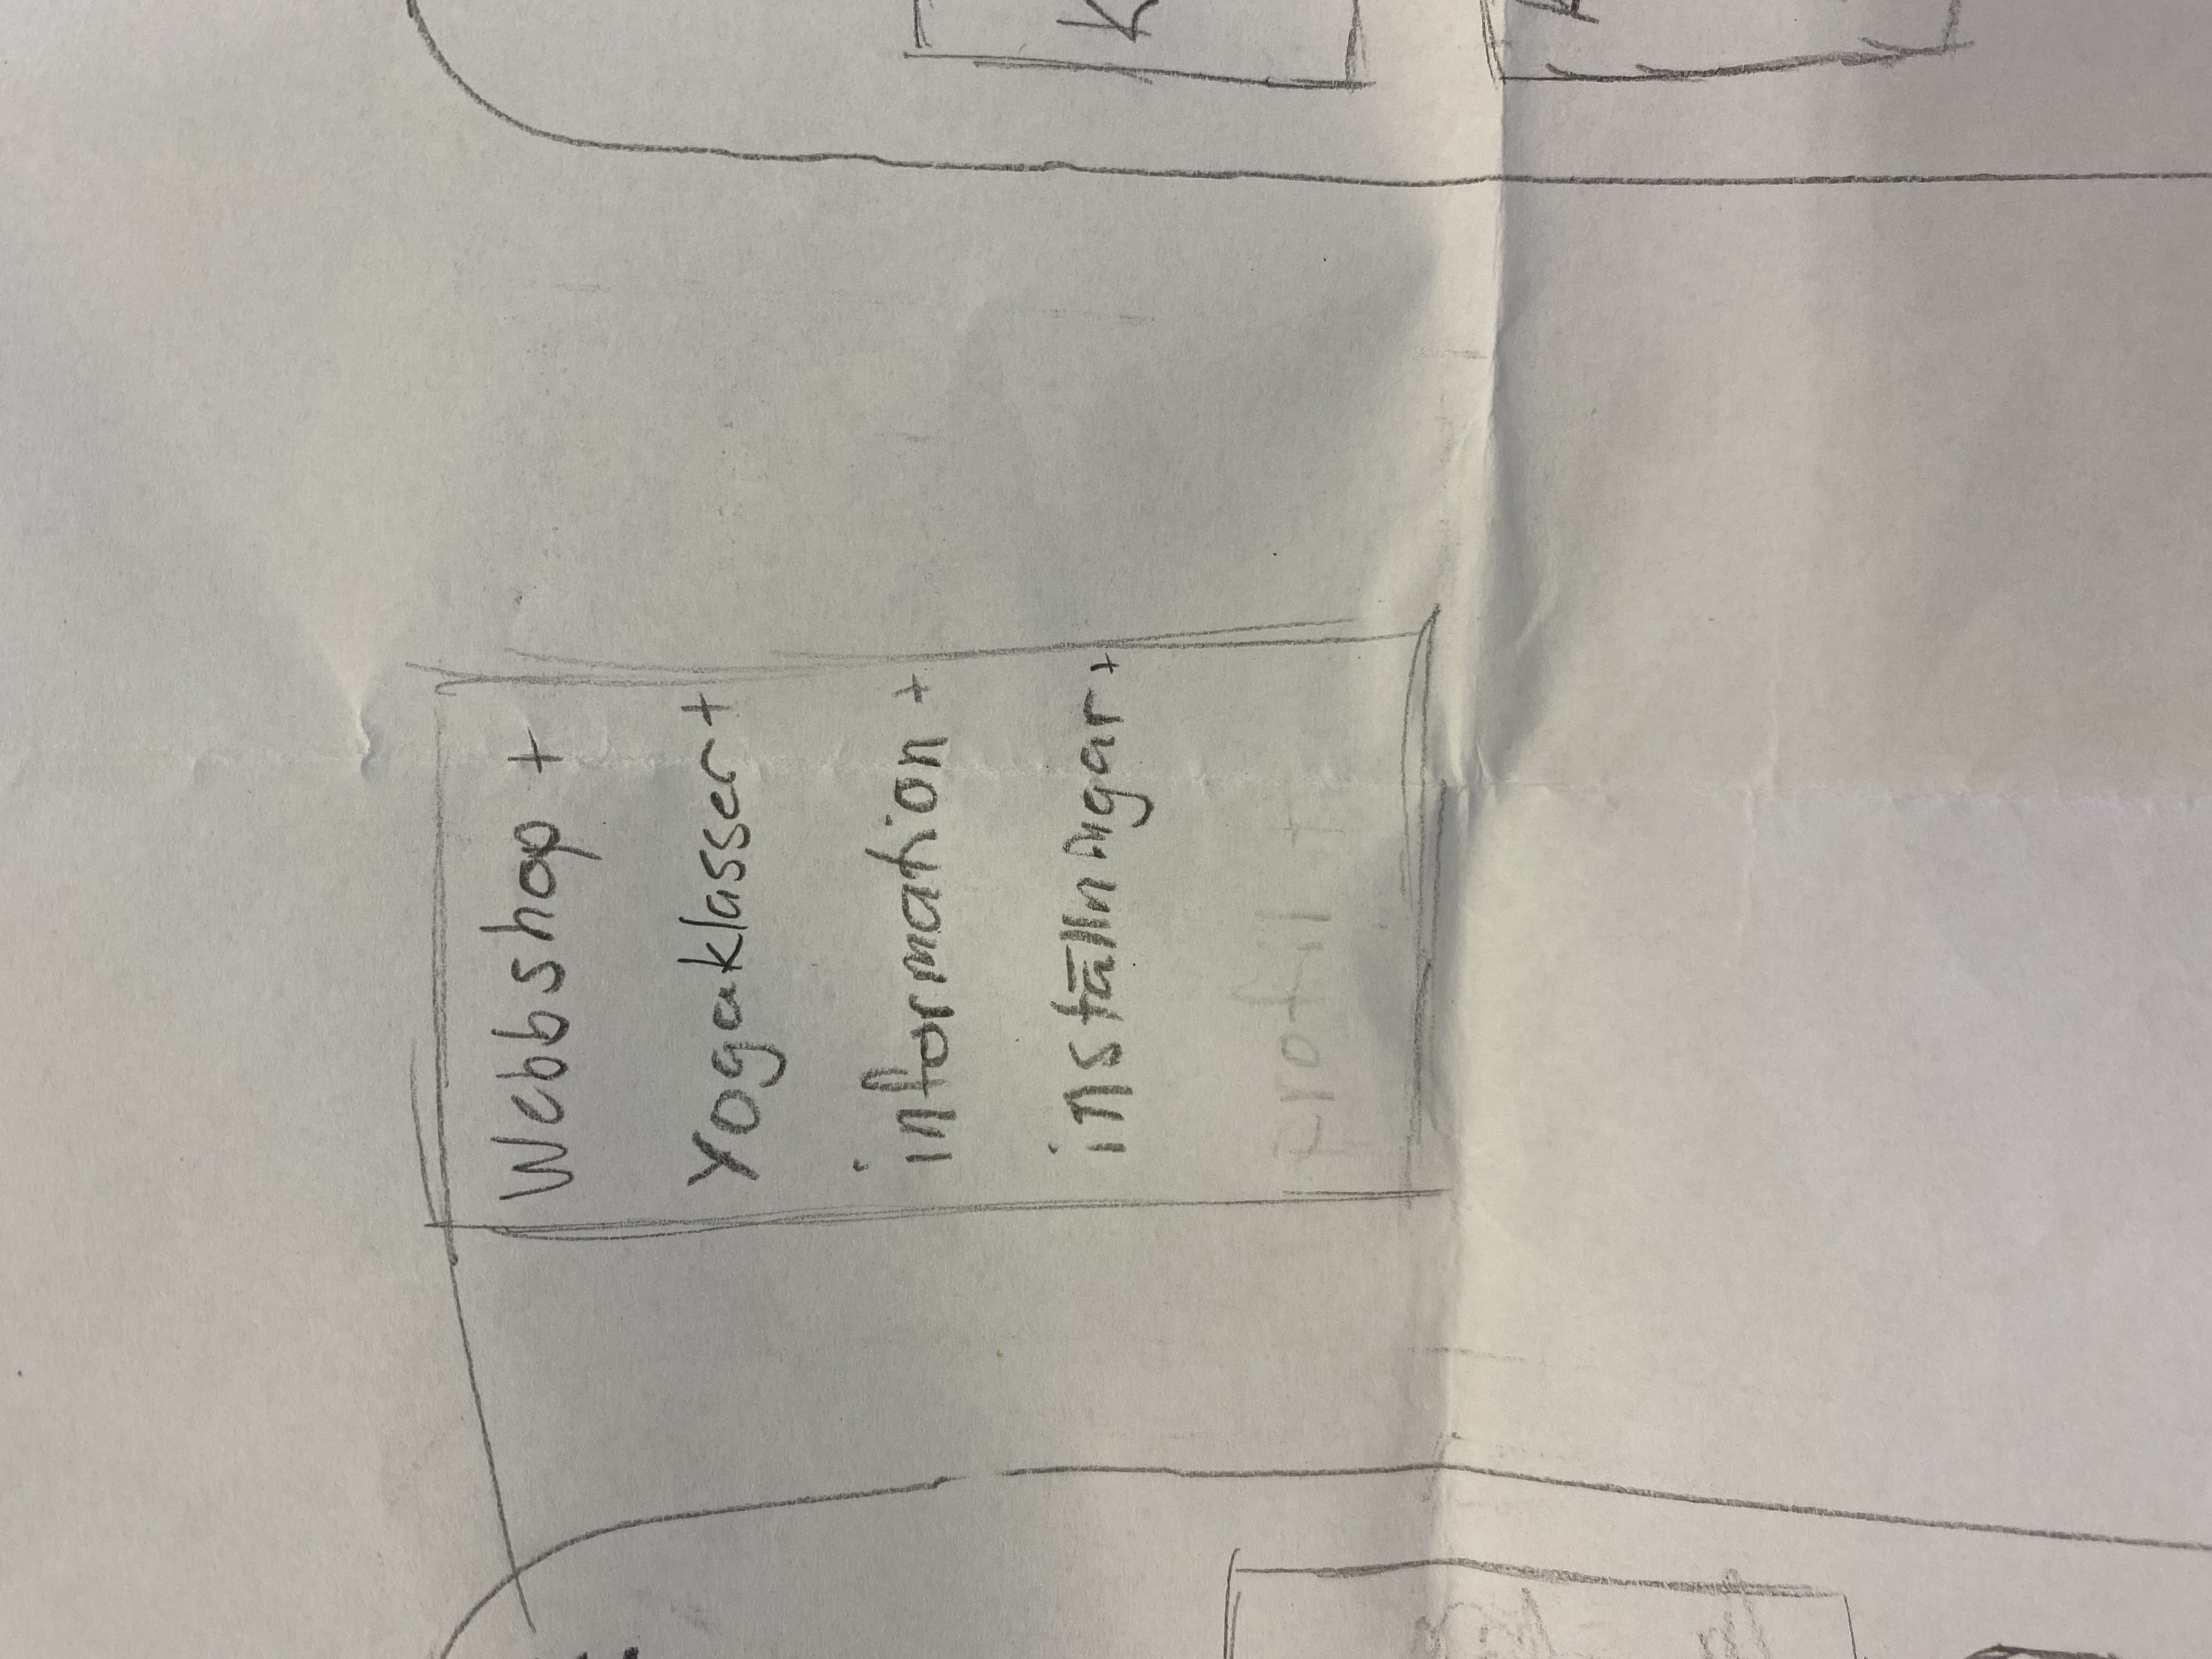 Webbshop +
Yogaklasser +
information +
inställningar +
profil +